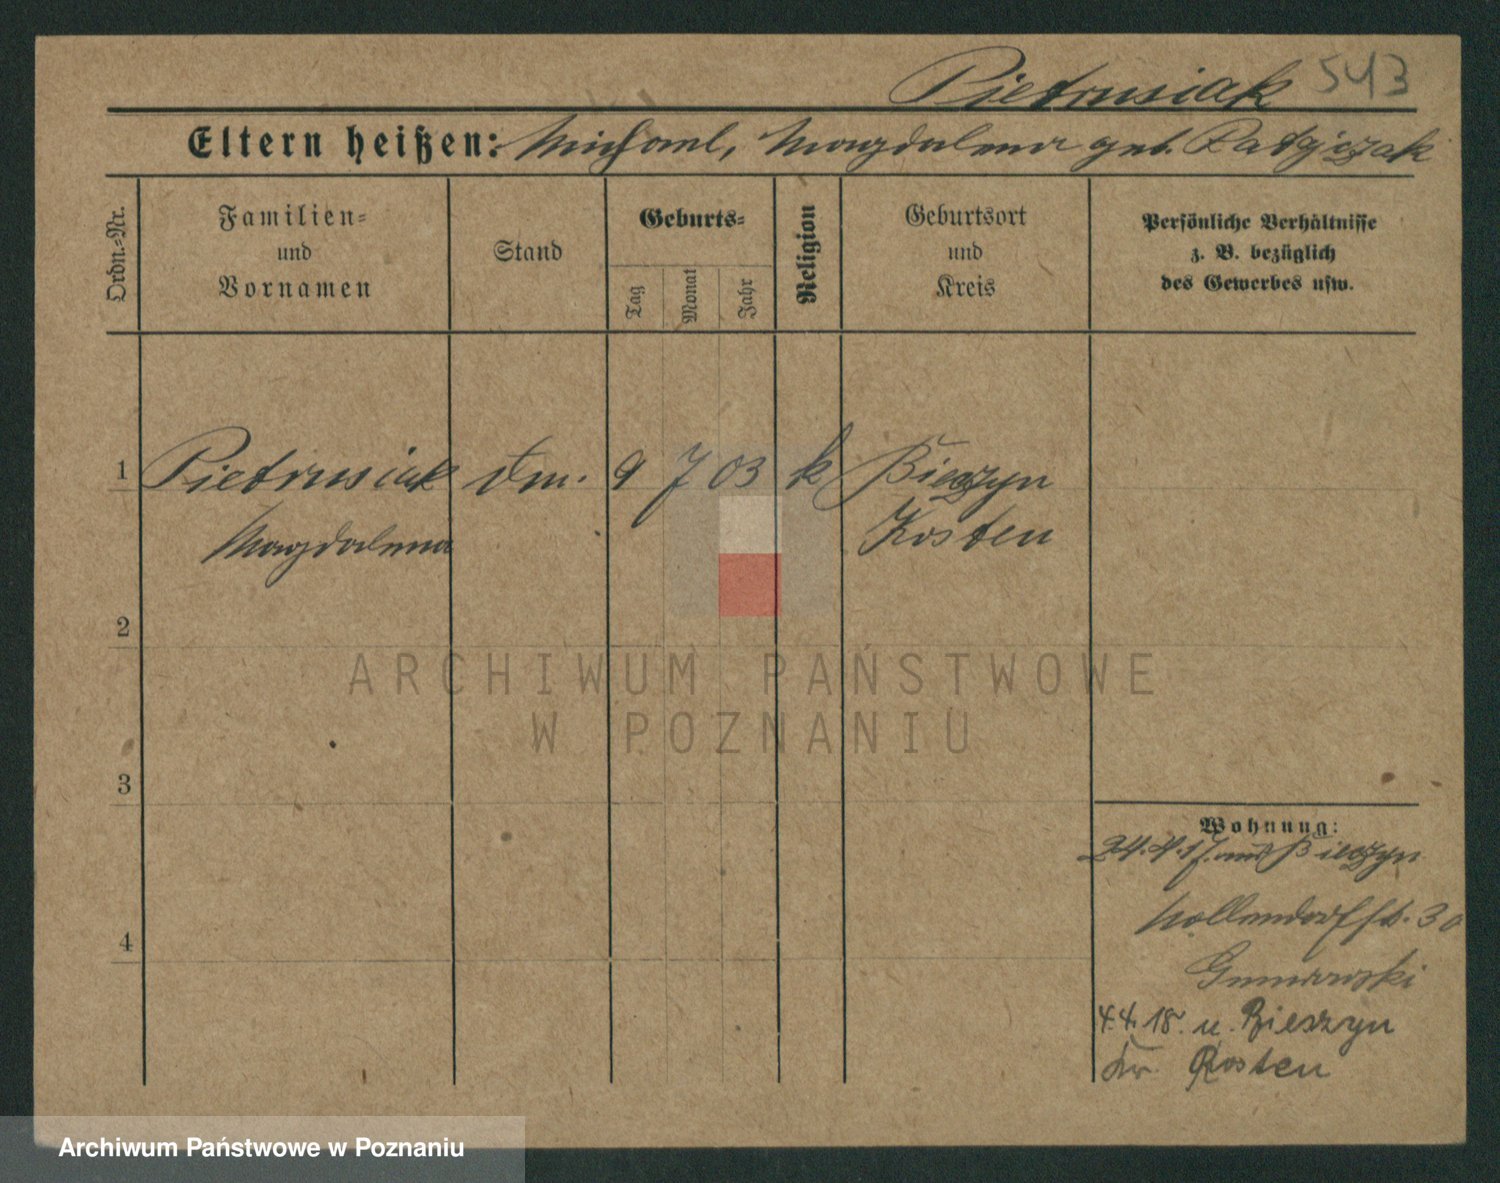 Pietrusiak 543
Eltern heißen: Michael, Magdalena geb. Ratajczak
Ordn.=Nr.
Familien=
und
Vornamen
Stand
Geburts=
Tag
Monat
Jahr
Religion
Geburtsort
und
Kreis
Persönliche Verhältnisse
z. B. bezüglich
des Gewerbes usw.
1 Pietrusiak 9 7 03 k Bieszyn
Magdalena Kosten
2
3
4
ARCHIWUM PAŃSTWOWE
W POZNANIU
Wohnung:
24.4.17. aus Bieszyn
Nollendorfst. 30
4.4.18. n. Bieszyn
Kr. Kosten
Archiwum Państwowe w Poznaniu